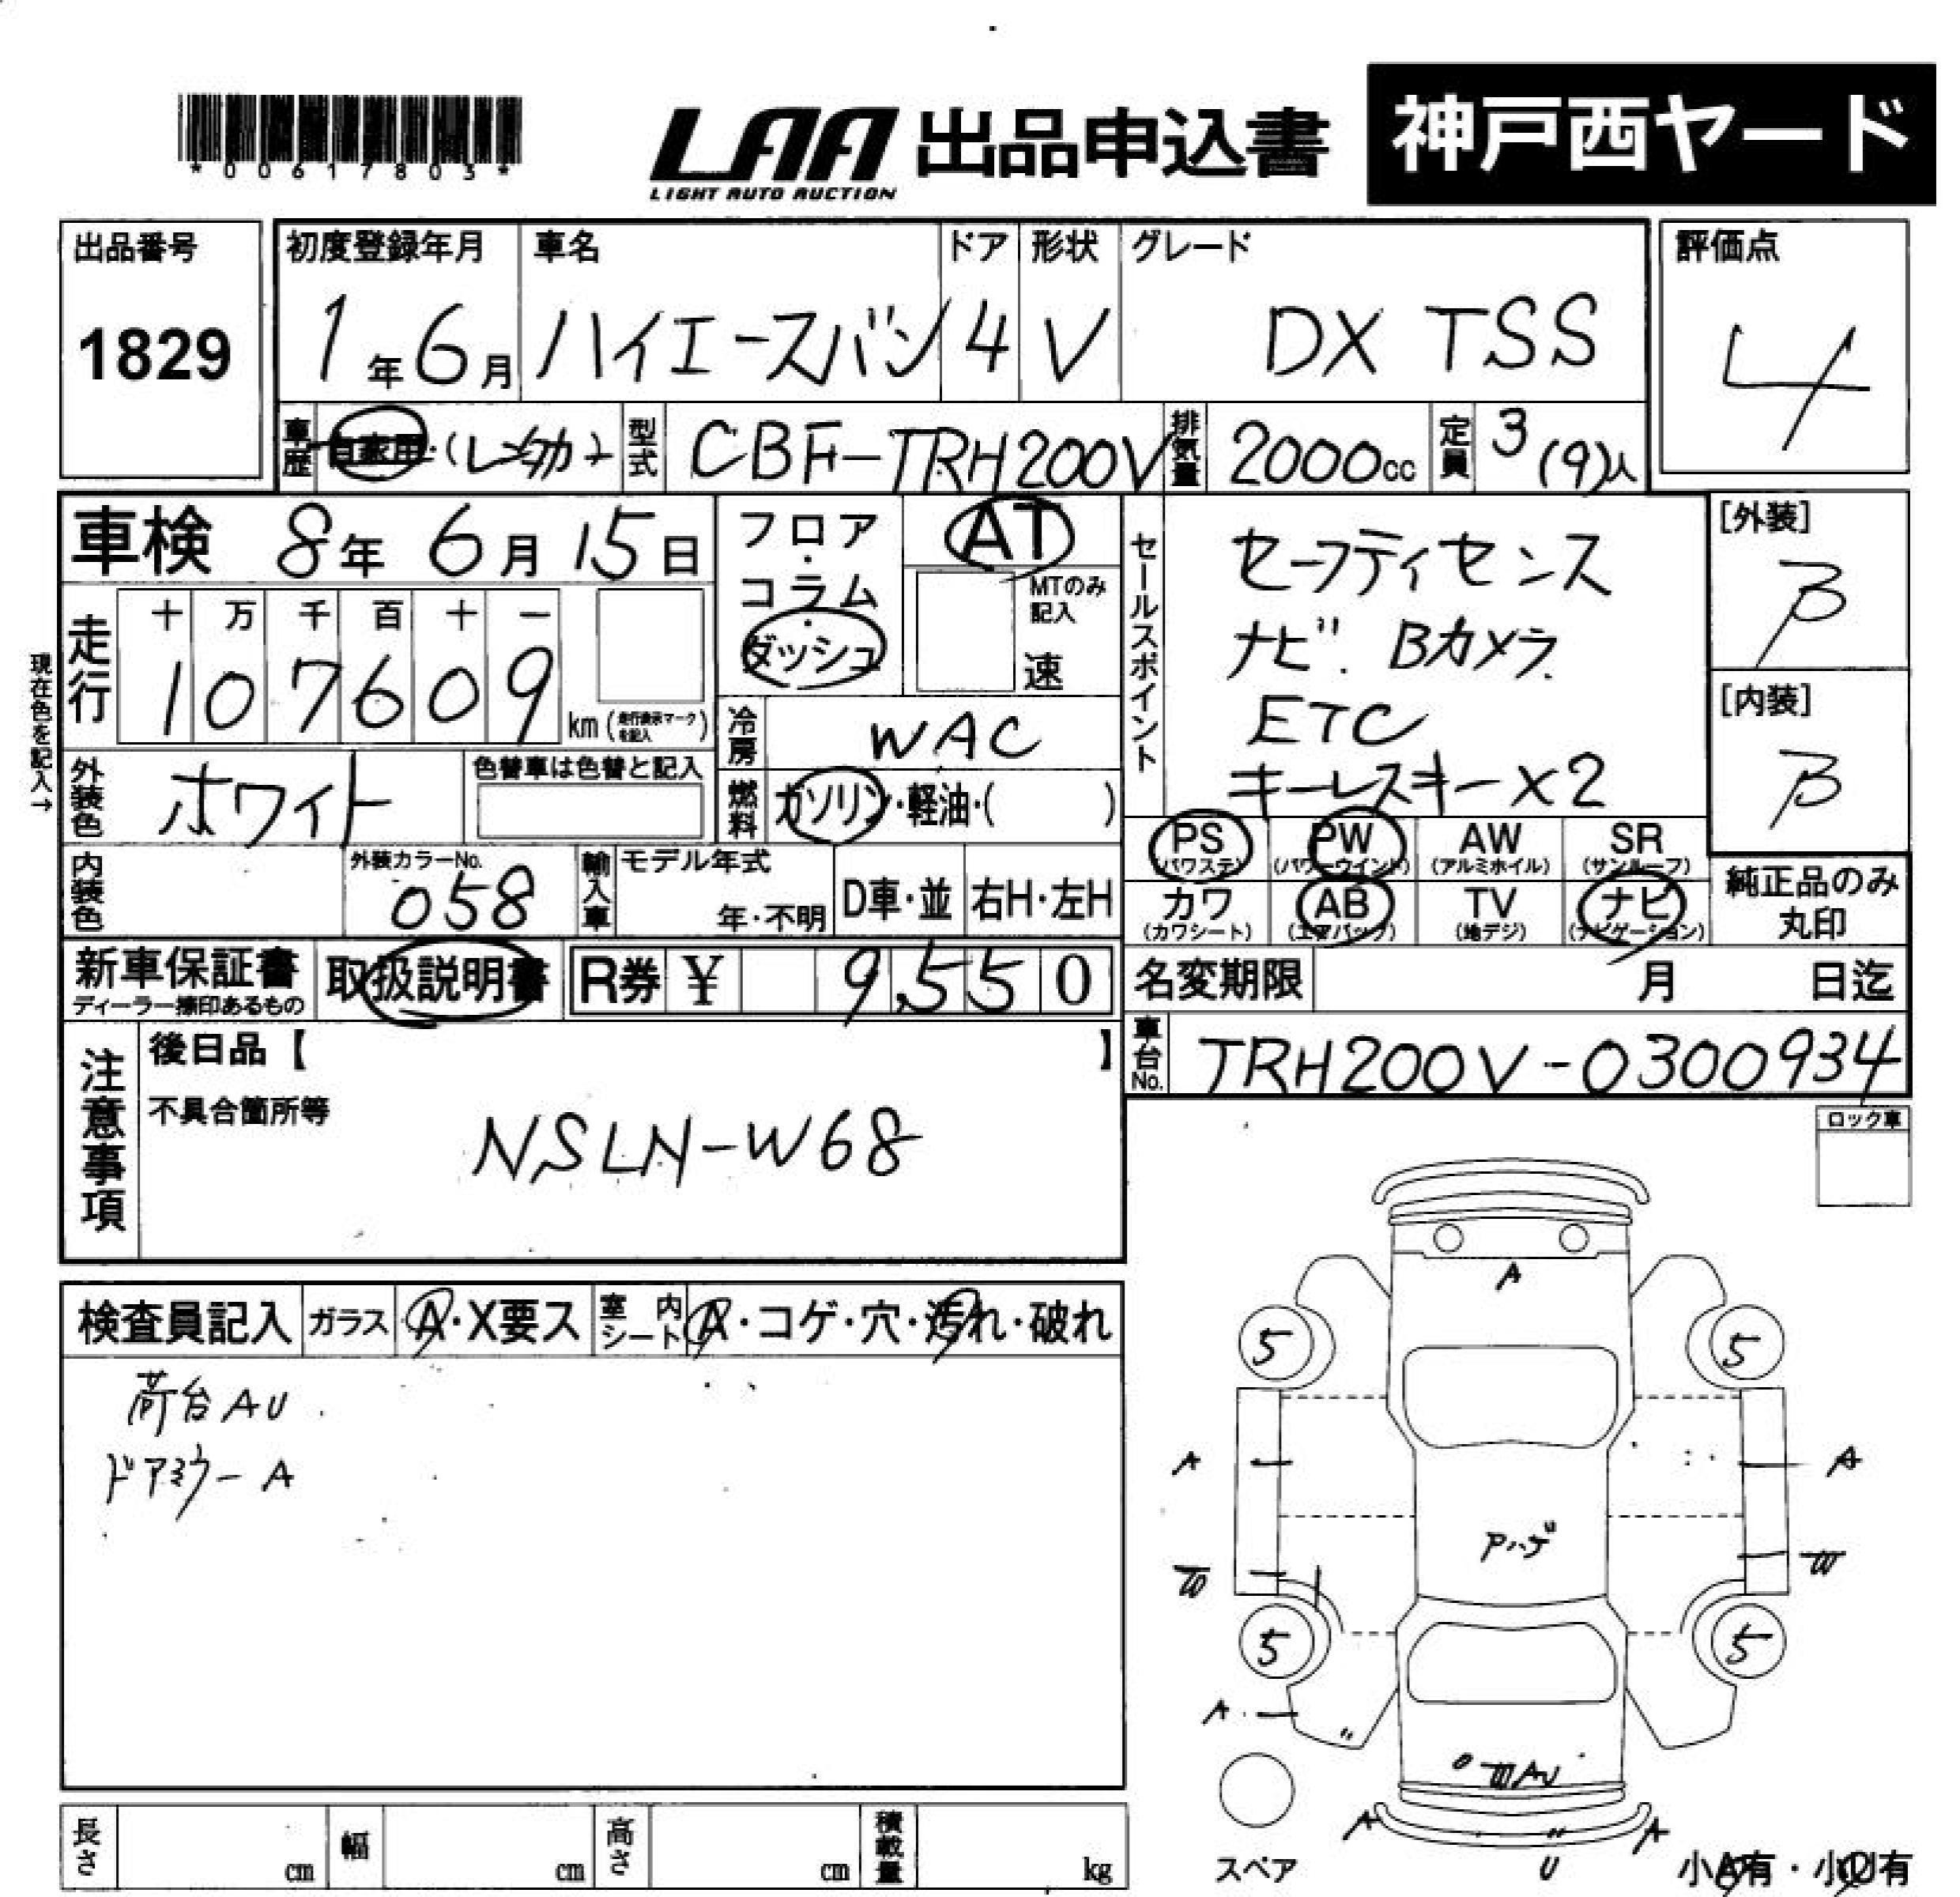 *00617803*
LAA 出品申込書 神戸西ヤード
LIGHT AUTO AUCTION
出品番号
1829
初度登録年月 車名 ドア 形状 グレード 評価点
1年6月 ハイエースバン 4 V DX TSS 4
車歴 自家用・(レンタカー) 型式 CBF-TRH200V 排気量 2000cc 定員 3(9)人
車検 8年6月15日
フロア・コラム・ダッシュ
AT
MTのみ記入
速
セールスポイント
セーフティセンス
ナビ. Bカメラ
ETC
キーレスキー×2
[外装]
B
[内装]
B
現在色を記入→
走行 十 万 千 百 十 一
107609 km (走行表示マークを記入)
冷房 WAC
外装色 ホワイト 色替車は色替と記入
燃料 ガソリン・軽油・( )
PS (パワステ) PW (パワーウインド) AW (アルミホイル) SR (サンルーフ)
カワ (カワシート) AB (エアバック) TV (地デジ) ナビ (ナビゲーション)
純正品のみ
丸印
内装色 外装カラーNo. 058 輸入車 モデル年式 年・不明 D車・並 右H・左H
新車保証書 ディーラー捺印あるもの 取扱説明書 R券 ¥ 9,550
名変期限 月 日迄
車台No. TRH200V-0300934
注意事項
後日品【 】
不具合箇所等
NSLN-W68
ロック車
検査員記入 ガラス A・X要ス 室内シート A・コゲ・穴・汚れ・破れ
荷台 AU
ドアミラー A
A
5 5
A A
Pハゲ
W W
5 5
A
〃
W AU
A A
〃
U
スペア
小A有・小U有
長さ cm 幅 cm 高さ cm 積載量 kg